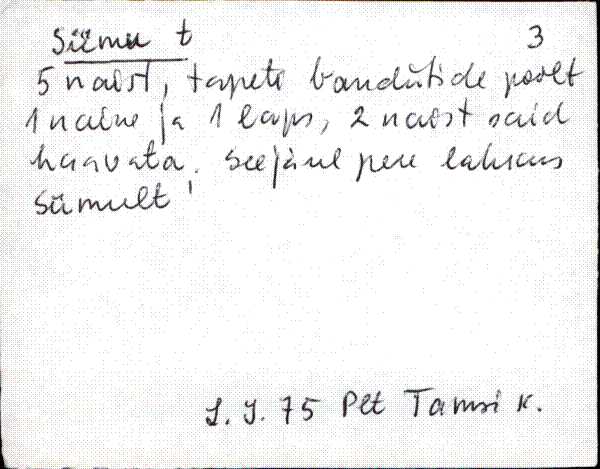 Siimu t 3
5 naist, tapeti bandiitide poolt
1 naine ja 1 laps, 2 naist said
haavata. Seejärel pere lahkus
Siimult
75 Plt Tamsi k.